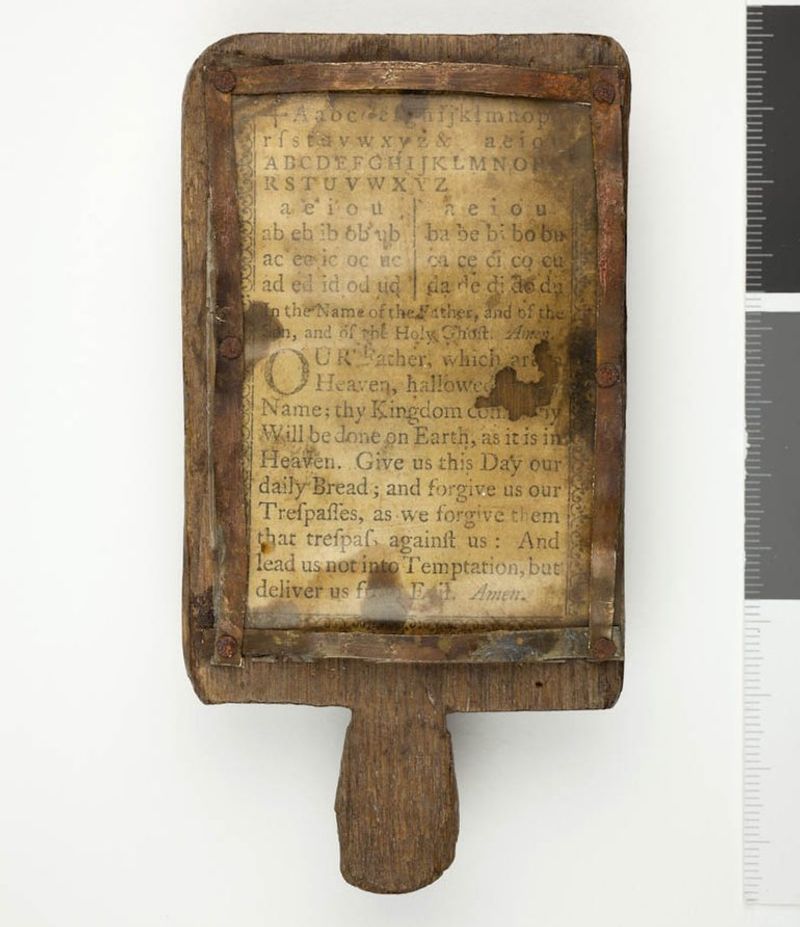 + A a b c d e f g h i j k l m n o p
r ſ s t u v w x y z & a e i o u
A B C D E F G H I J K L M N O P
R S T U V W X Y Z
a e i o u a e i o u
ab eb ib ob ub ba be bi bo bu
ac ec ic oc uc ca ce ci co cu
ad ed id od ud da de di do du
In the Name of the Father, and of the
Son, and of the Holy Ghoſt. Amen
OUR Father, which art
Heaven, hallowed
Name; thy Kingdom
Will be done on Earth, as it is in
Heaven. Give us this Day our
daily Bread; and forgive us our
Treſpaſſes, as we forgive them
that treſpaſs againſt us: And
lead us not into Temptation, but
deliver us Evil. Amen.